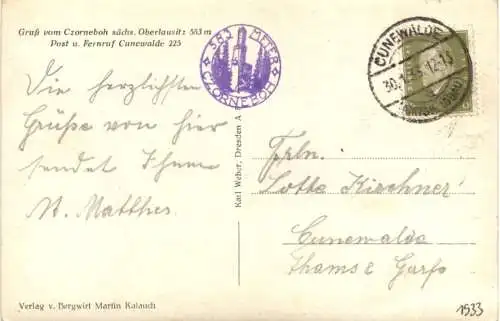 Gruß vom Czorneboh sächs. Oberlausitz 583 m
Post u. Fernruf Cunewalde 225
583 METER
CZORNEBOH
CUNEWALDE
Die herzlichsten
Grüße von hier
sendet Ihnen
M. Matthes
Karl Weber, Dresden A
Frln.
Lotte Kirchner
Cunewalde
Thams & Garfs
Verlag v. Bergwirt Martin Kalauch
1933